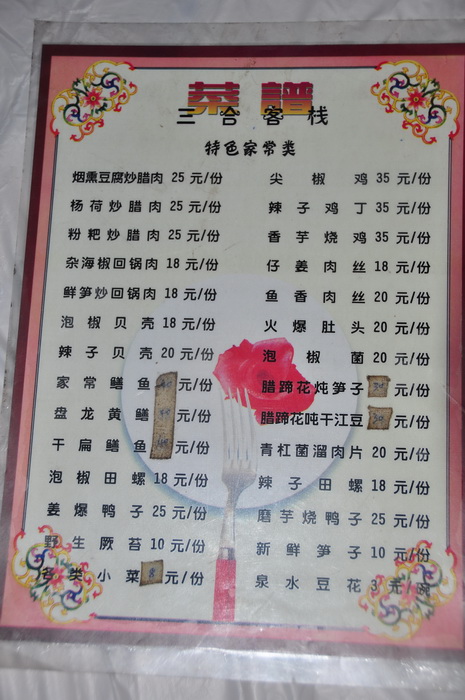 菜譜
三合客栈
特色家常类
烟熏豆腐炒腊肉 25 元/份
杨荷炒腊肉 25 元/份
粉粑炒腊肉 25 元/份
杂海椒回锅肉 18 元/份
鲜笋炒回锅肉 18 元/份
泡椒贝壳 18 元/份
辣子贝壳 20 元/份
家常鳝鱼 元/份
盘龙黄鳝 元/份
干扁鳝鱼 元/份
泡椒田螺 18 元/份
姜爆鸭子 25 元/份
野生厥苔 10 元/份
各类小菜 8 元/份
尖椒鸡 35 元/份
辣子鸡丁 35 元/份
香芋烧鸡 35 元/份
仔姜肉丝 18 元/份
鱼香肉丝 20 元/份
火爆肚头 20 元/份
泡椒菌 20 元/份
腊蹄花炖笋子 元/份
腊蹄花吨干江豆 元/份
青杠菌溜肉片 20 元/份
辣子田螺 18 元/份
磨芋烧鸭子 25 元/份
新鲜笋子 10 元/份
泉水豆花 3 元/碗